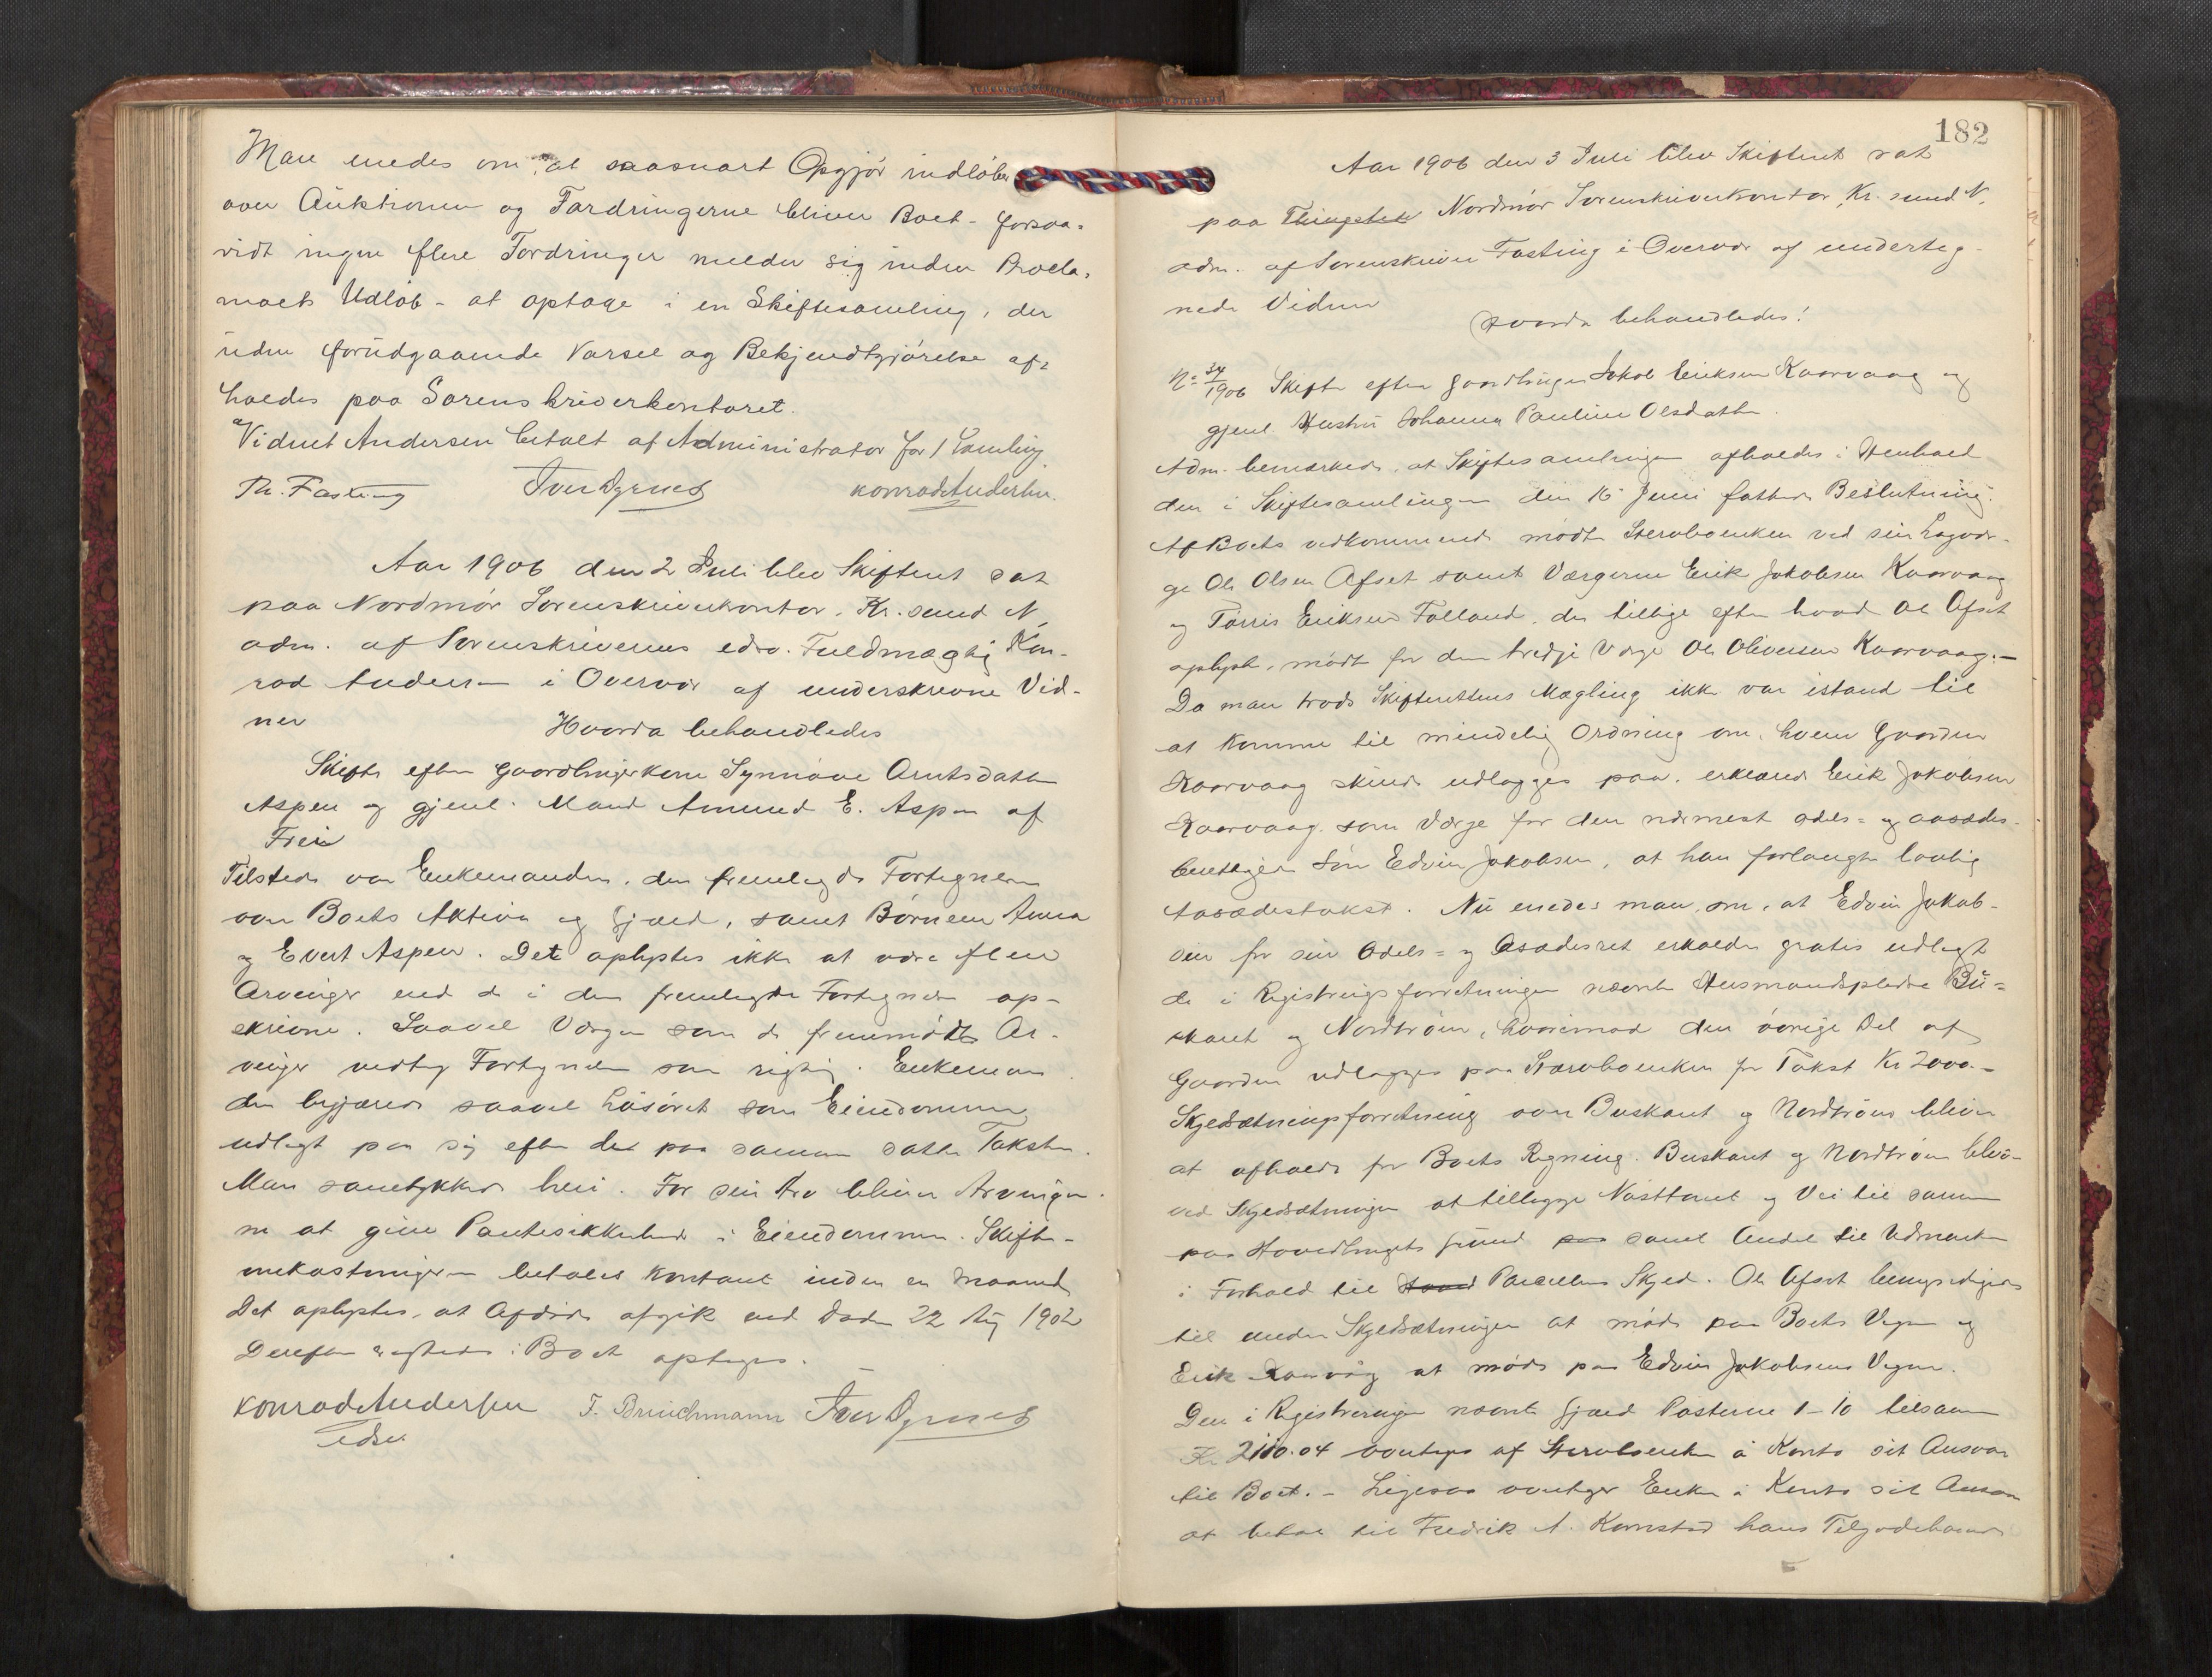 Man enedes om at saasnart Opgjør indløber
over Auktionen og Fordringerne bliver Boet - forsaa-
vidt ingen flere Fordringer melder sig inden Procla-
maets Udløb - at optage i en Skiftesamling, der
uden forudgaaende Varsel og Bekjendtgjørelse af-
holdes paa Sorenskriverkontoret.
Vidnet Andersen betalt af Administrator for 1 Samling
Th. Fasting Konrad Andersen.
Aar 1906 den 2 Juli blev Skifteret sat
paa Nordmør Sorenskriverkontor, Kr.sund N.
adm. af Sorenskriverens edsv. Fuldmægtig Kon-
rad Andersen i Overvær af underskrevne Vid-
ner Hvorda behandledes
Skifte efter Gaardbrugerkone Synnøve Arntsdatter
Aspen og gjenl. Mand Amund E. Aspen af
Frei
Tilstede var Enkemanden, der fremlagde Fortegnelse
over Boets Aktiva og Gjæld, samt Børnene Anna
og Evert Aspen. Det oplystes ikke at være flere
Arvinger end de i den fremlagte Fortegnelse op-
skrevne. Saavel Værgen som de fremmødte Ar-
vinger vedtog Fortegnelsen som rigtig. Enkeman
den begjærede saavel Løsøret som Eiendommen
udlagt paa sig efter det paa samme satte Takster.
Man samtykkede heri. For sin Arv bliver Arvinger-
ne at give Pantesikkerhed i Eiendommen. Skifte-
omkostningerne betales kontant inden en Maaned
Det oplystes, at Afdøde afgik ved Døden 22 Aug 1902
Derefter Boet optages.
Konrad Andersen J. Bruichmann
edsv.
182
Aar 1906 den 3 Juli blev Skifteret sat
paa Thingstedet Nordmør Sorenskriverkontor, Kr.sund N.
adm. af Sorenskriver Fasting i Overvær af underteg-
nede Vidner
Hvorda behandledes:
No 34/1906 Skifte efter Gaardbruger Jakob Eriksen Kaarvaag og
gjenl Hustru Johanna Pauline Olsdatter.
Adm. bemærkede, at Skiftesamlingen afholdes i Henhold
den i Skiftesamlingen den 16 Juni fattede Beslutning.
Af Boets vedkommende mødte Stervboenken ved sin Lagvær-
ge Ole Olsen Afset samt Værgerne Erik Jakobsen Kaarvaag
og Torris Eriksen Folland, der tillige efter hvad Ole Afset
oplyste, mødte for den tredje Værge Ole Oliversen Kaarvaag. -
Da man trods Skifterettens Mægling ikke var istand til
at komme til mindelig Ordning om, hvem Gaarden
Kaarvaag skulde udlægges paa, erklærede Erik Jakobsen
Kaarvaag som Værge for den nærmest odels- og aasædes-
berettigede Søn Edvin Jakobsen, at han forlangte lovlig
Aasædestakst. Nu enedes man om, at Edvin Jakob-
sen for sin Odels- og Aasædesret erholder gratis udlagt
de i Registreringsforretningen nævnte Husmandspladse Bu-
skaret og Nordtrøen, hvorimod den øvrige Del af
Gaarden udlægges paa Stervboenken for Takst Kr 2000.-
Skyldsætningsforretning over Buskaret og Nordtrøen bliver
at afholde for Boets Regning. Buskaret og Nordtrøen bliver
ved Skyldsætningen at tillægge Nøsttomt og Vei til samme
paa Hovedbrugets Grund paa samt Andel til Udmarken
i Forhold til Hoved Parcellens Skyld. Ole Afset bemyndiges
til under Skyldsætningen at møde paa Boets Vegne og
Erik Kaarvåg at møde paa Edvin Jakobsens Vegne.
Den i Registreringen nævnte Gjæld Posterne 1-10 tilsammen
Kr. 2110.04 overtages af Stervboenken à Konto sit Ansvar
til Boet. - Ligesaa overtager Enken à Konto sit Ansvar
at betale til Fredrik A. Kornstad hans Tilgodehavende